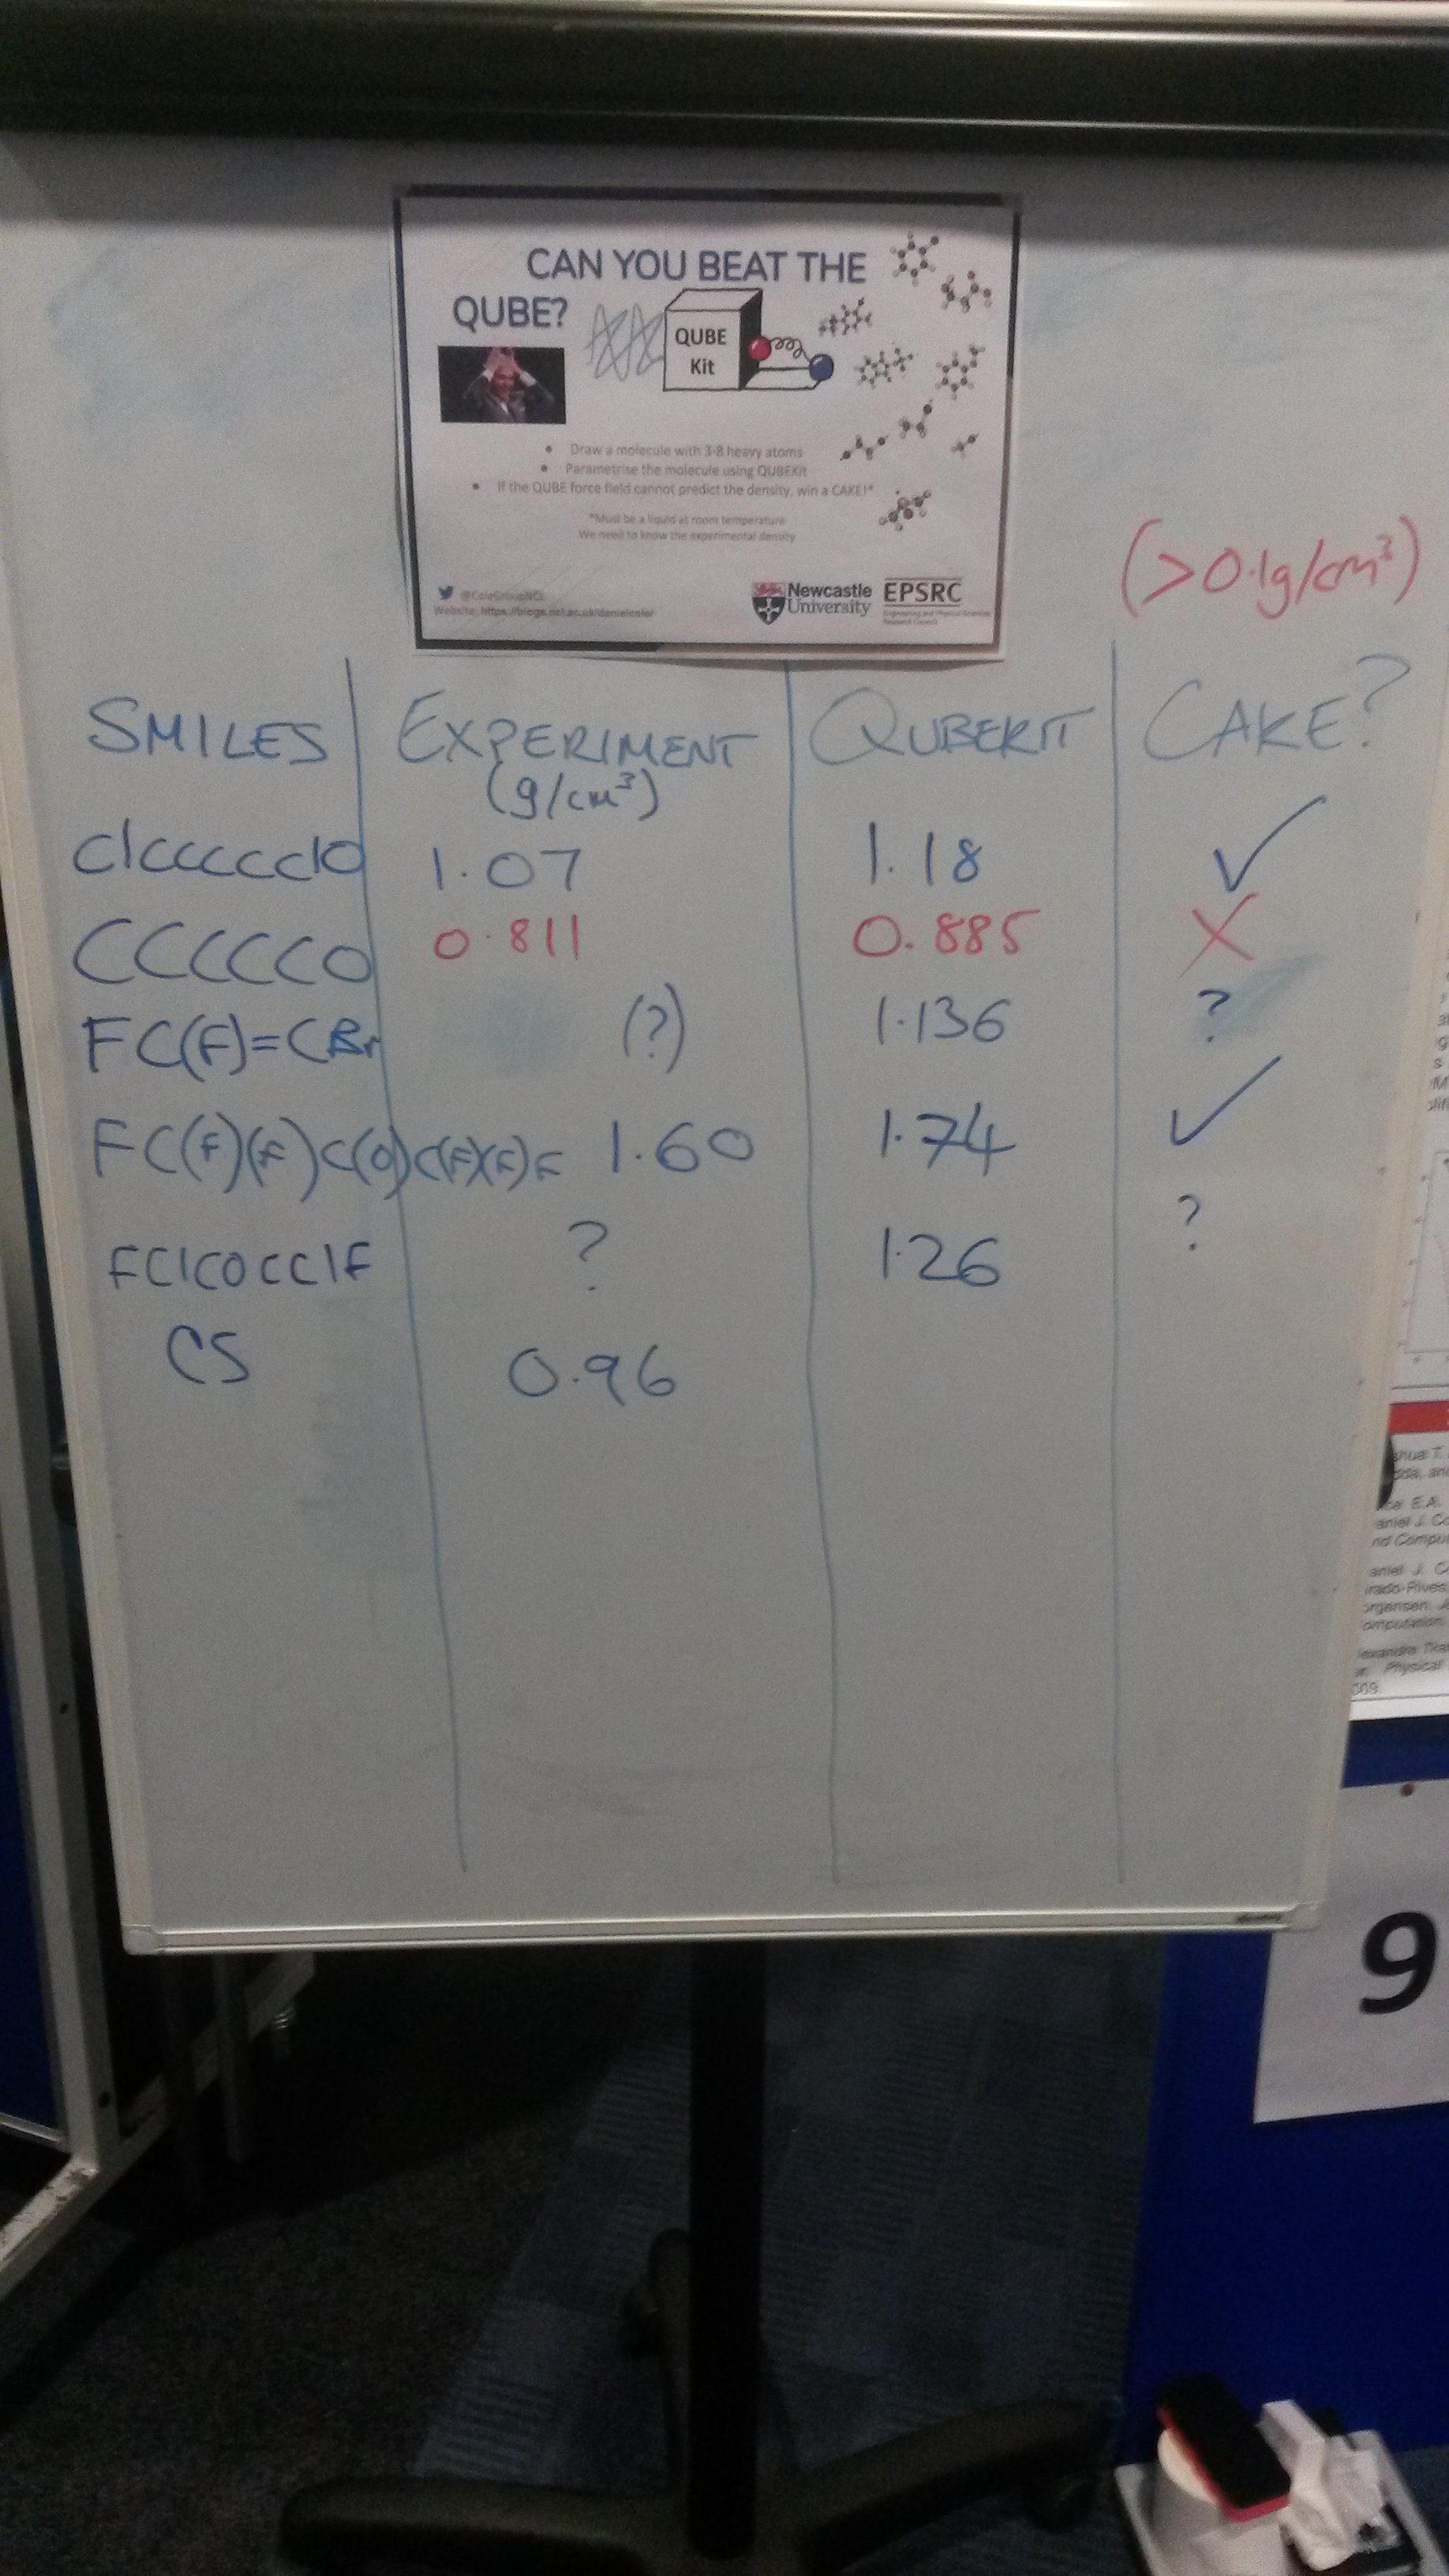 CAN YOU BEAT THE
QUBE?
QUBE
Kit
• Draw a molecule with 3-8 heavy atoms
• Parametrise the molecule using QUBEKit
• If the QUBE force field cannot predict the density, win a CAKE!*
*Must be a liquid at room temperature
We need to know the experimental density
@ColeGroupNCL
Website: https://blogs.ncl.ac.uk/danielcole/
Newcastle
University
EPSRC
Engineering and Physical Sciences
Research Council
(>0.1g/cm³)
SMILES EXPERIMENT QUBEKIT CAKE?
(g/cm³)
c1ccccc1O 1.07 1.18 ✓
CCCCCCO 0.811 0.885 X
FC(F)=CBr (?) 1.136 ?
FC(F)(F)C(O)C(F)(F)F 1.60 1.74 ✓
FC1COCC1F ? 1.26 ?
CS 0.96
and
E.A.
aniel J. Co
nd Compu
aniel J. C
Physical
009.
9